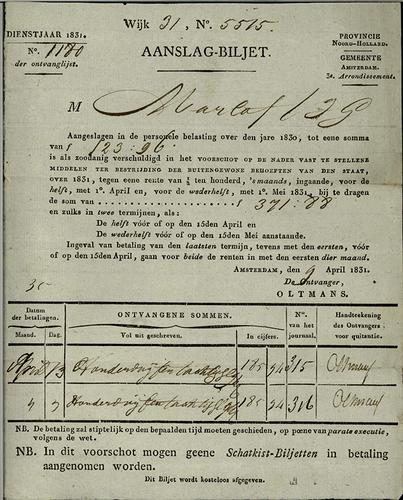 Wijk 31, No. 5515.
DIENSTJAAR 1831.
No. 1180
der ontvanglijst.
AANSLAG-BILJET.
PROVINCIE
NOORD-HOLLAND.
GEMEENTE
AMSTERDAM.
3e. Arrondissement.
M
Aangeslagen in de personele belasting over den jare 1830, tot eene somma
van f 123:96
is als zoodanig verschuldigd in het VOORSCHOT OP DE NADER VAST TE STELLENE
MIDDELEN TER BESTRIJDING DER BUITENGEWONE BEHOEFTEN VAN DEN STAAT,
over 1831, tegen eene rente van ½ ten honderd, 'smaands, ingaande, voor de
helft, met 1o. April en, voor de wederhelft, met 1o. Mei 1831, bij te dragen
de som van f 371:88
en zulks in twee termijnen, als:
De helft vóór of op den 15den April en
De wederhelft vóór of op den 15den Mei aanstaande.
Ingeval van betaling van den laatsten termijn, tevens met den eersten, vóór
of op den 15den April, gaan voor beide de renten in met den eersten dier maand.
AMSTERDAM, den 9 April 1831.
De Ontvanger,
OLTMANS.
Datum
der betalingen.
Maand. Dag.
ONTVANGENE SOMMEN.
Vol uit geschreven. In cijfers.
No.
van het
journaal.
Handteekening
des Ontvangers
voor quitantie.
April 13 185 94 315
185 94 316
NB. De betaling zal stiptelijk op den bepaalden tijd moeten geschieden, op pœne van parate executie,
volgens de wet.
NB. In dit voorschot mogen geene Schatkist-Biljetten in betaling
aangenomen worden.
Dit Biljet wordt kosteloos afgegeven.